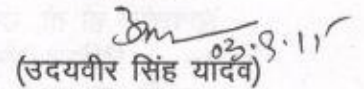 03.9.11
(उदयवीर सिंह यादव)